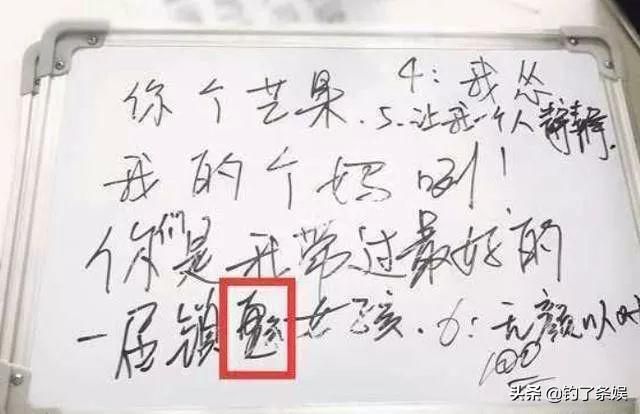 你个芒果. 4：我怂
5、让我一个人静静.
我的个妈
你们是我带过最好的
一届镇 女孩. 6：无颜以
100
头条 @钓了条娱